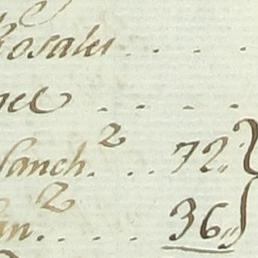 Rosales . . .
gel . . . .
lanch.² . . 72,,
in² . . . . 36,,